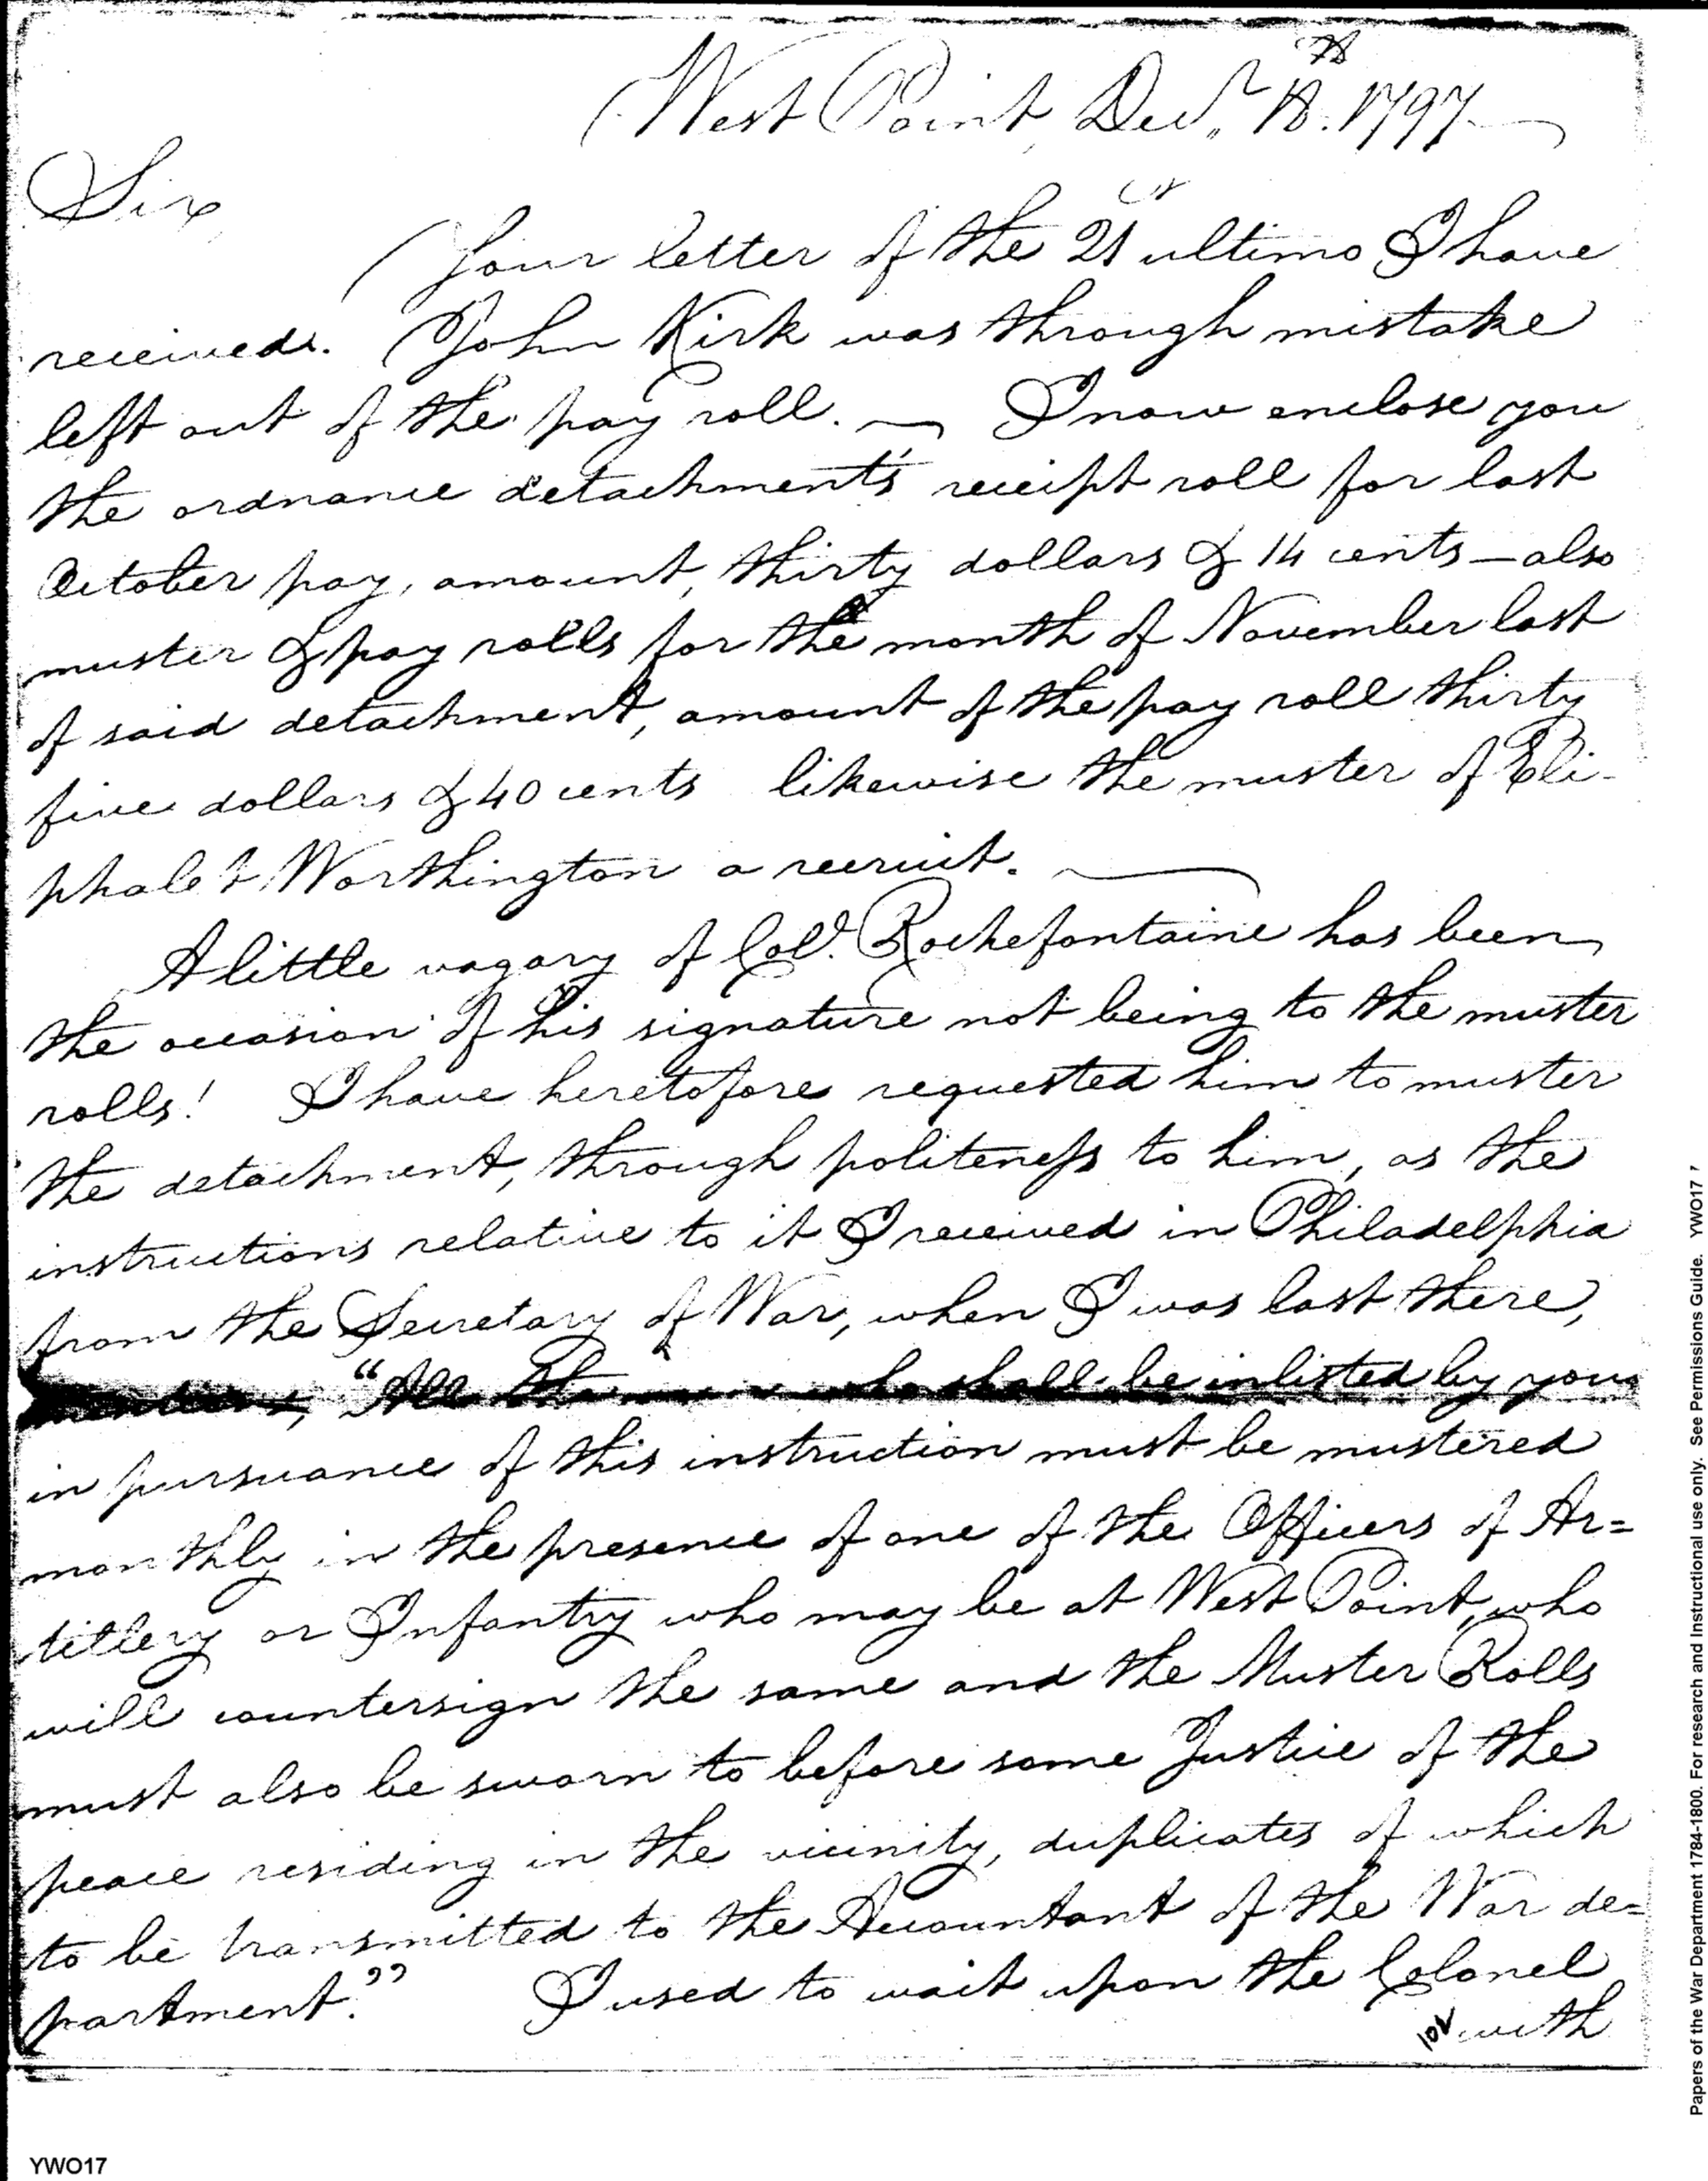 West Point, Decr. 18th. 1797
Sir,
Your letter of the 21st ultimo I have
received. John Kirk was through mistake
left out of the pay roll. — I now enclose you
the ordnance detachment's receipt roll for last
October pay, amount, thirty dollars & 14 cents — also
muster & pay rolls for the month of November last
of said detachment, amount of the pay roll thirty
five dollars & 40 cents likewise the muster of Eli-
phalet Worthington a recruit. —
A little vagary of Col. Rochefontaine has been
the occasion of his signature not being to the muster
rolls! I have heretofore requested him to muster
the detachment, through politeness to him, as the
instructions relative to it I received in Philadelphia
from the Secretary of War, when I was last there,
"All the who shall be inlisted by you
in pursuance of this instruction must be mustered
monthly in the presence of one of the Officers of Ar=
tillery or Infantry who may be at West Point, who
will countersign the same and the Muster Rolls
must also be sworn to before some Justice of the
peace residing in the vicinity, duplicates of which
to be transmitted to the Accountant of the War de=
partment." I used to wait upon the Colonel
with
YWO17
Papers of the War Department 1784-1800. For research and Instructional use only. See Permissions Guide. YWO17